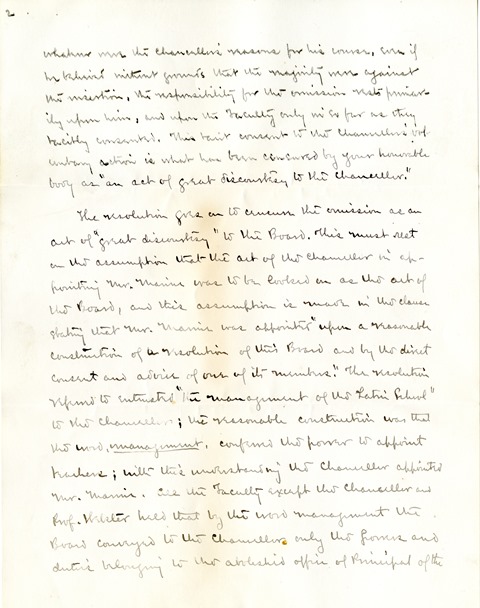 2
whatever were the Chancellor's reasons for his course, even if
he believed without grounds that the majority were against
the insertion, the responsibility for the omission rests primar-
ily upon him, and upon the Faculty only in so far as they
tacitly consented. This tacit consent to the Chancellor's vol-
untary action is what has been censured by your honorable
body as "an act of great discourtesy to the Chancellor."
The resolution goes on to censure the omission as an
act of "great discourtesy" to the Board. This must rest
on the assumption that the act of the Chancellor in ap-
pointing Mr. was to be looked on as the act of
the Board, and this assumption is made in the clause
stating that Mr. was appointed "upon a reasonable
construction of a resolution of this Board and by the direct
consent and advice of one of its members." The resolution
referred to entrusted "the management of the Latin School"
to the Chancellor; the reasonable construction was that
the word, management, conferred the power to appoint
teachers; with this understanding the Chancellor appointed
Mr. . All the Faculty except the Chancellor and
Prof. held that by the word management the
Board conveyed to the Chancellor only the powers and
duties belonging to the abolished office of Principal of the